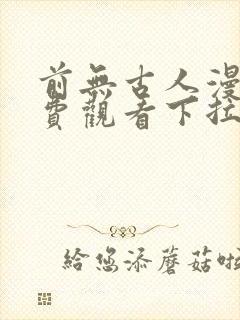 前無古人漫
費觀看下拉
給您添蘑菇啦